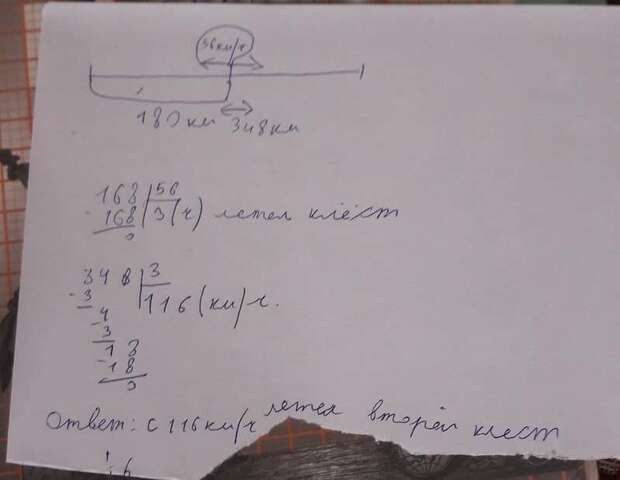 56км/ч
180км 348км
168 56
168 3(ч) летел клёст
0
348 3
3 116(км)ч.
4
3
18
18
0
Ответ: с 116км/ч летел второй клест